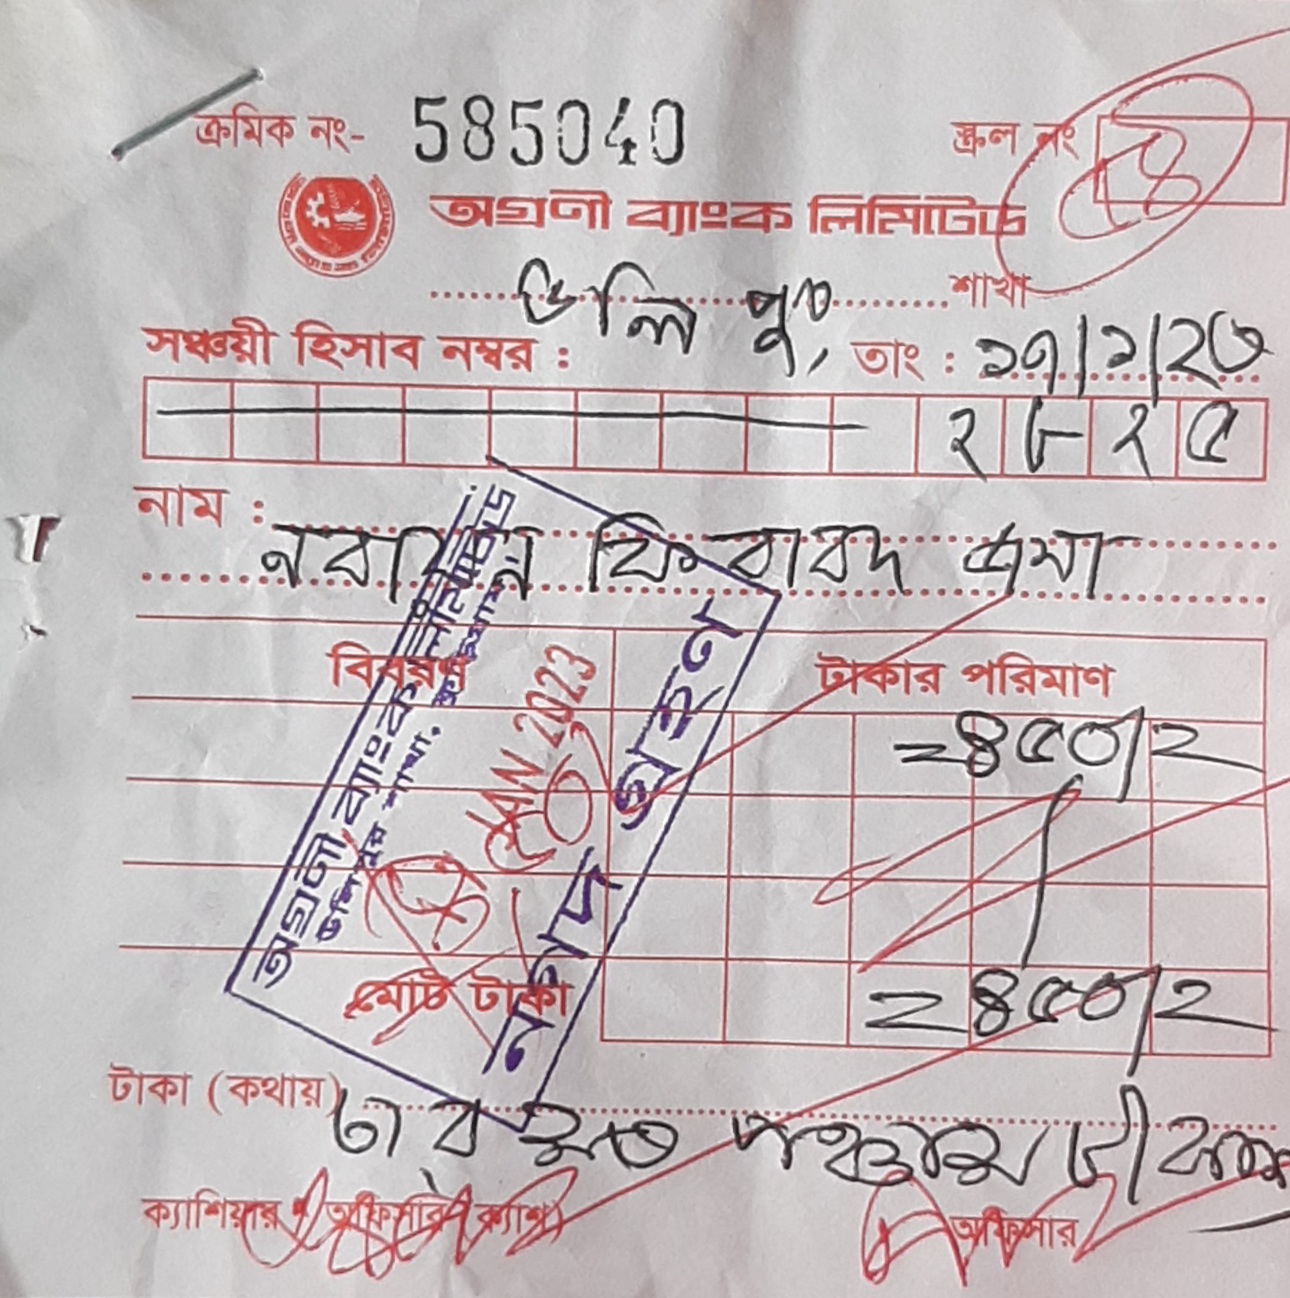 ক্রমিক নং- 585040
স্ক্রল নং
অগ্রণী ব্যাংক লিমিটেড
উলিপুর, শাখা
সঞ্চয়ী হিসাব নম্বর : তাং : ১৭/১/২৩
২৮২৫
নাম : নবায়ন ফি বাবদ জমা
বিবরণ টাকার পরিমাণ
=৪৫০/=
মোট টাকা =৪৫০/=
টাকা (কথায়) চারশত পঞ্চাশ টাকা
ক্যাশিয়ার অফিসার (ক্যাশ) অফিসার
অগ্রণী ব্যাংক লিমিটেড
উলিপুর শাখা, কুড়িগ্রাম
JAN 2023
নগদ গ্রহণ